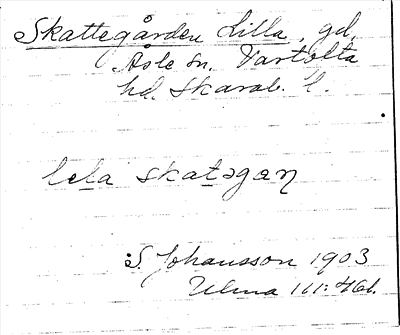 Skattegården Lilla, gd,
Åsle sn. Vartofta
hd. Skarab. l.
lela skatəgaɳ
S. Johansson 1903
Ulma 111: 46b.